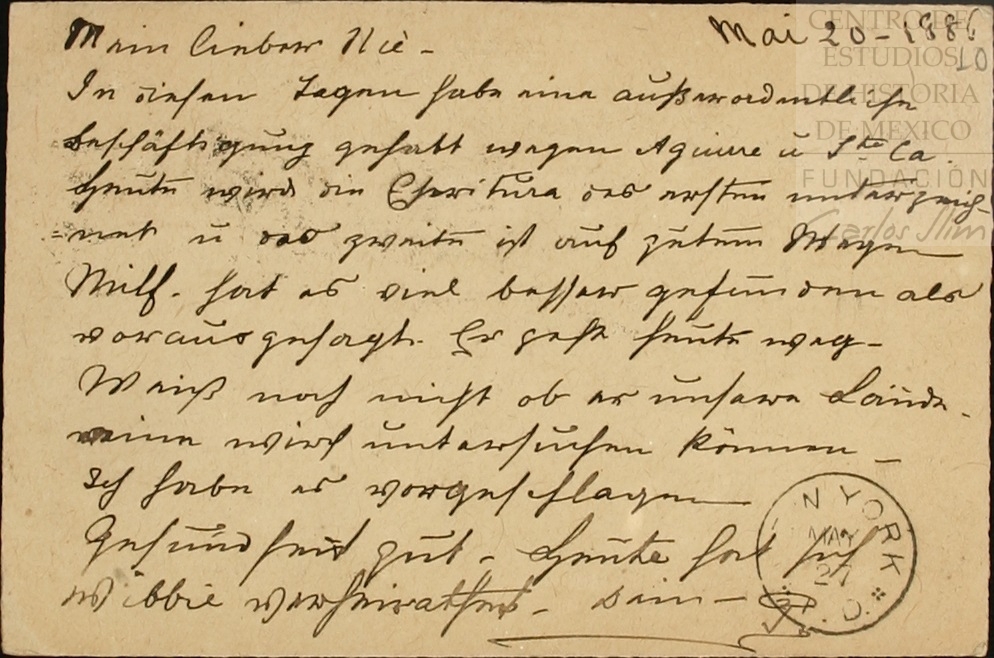 Mai 20-1886
Mein lieber Nic -
In diesen Tagen habe eine außerordentliche
Beschäftigung gehabt wegen Aguirre u Ste Ca.
Heute wird die Escritura des ersten unterzeich-
=net u das zweite ist auf gutem Wege
Milh. hat es viel besser gefunden als
vorausgesagt. Er geht heute weg -
Weiß noch nicht ob er unsere
wird untersuchen können -
Ich habe es vorgeschlagen
Gesundheit gut - Heute hat sich
verheirathet - Dein -
N YORK
MAY
27
CENTRO DE
ESTUDIOS
DE HISTORIA
DE MEXICO
FUNDACIÓN
Carlos Slim